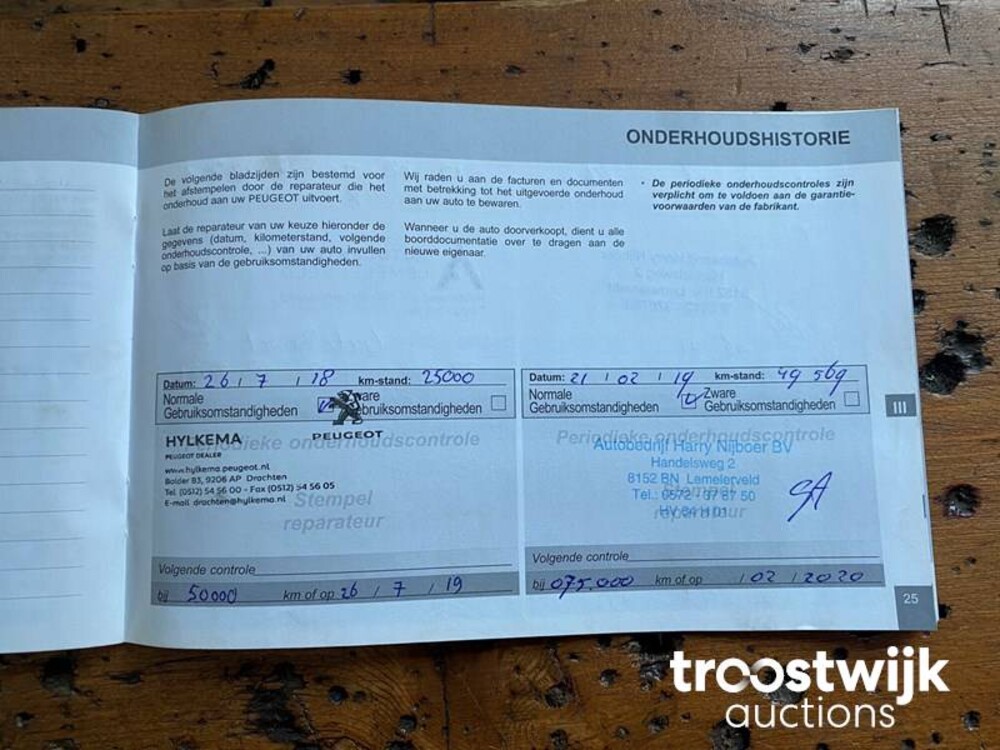 ONDERHOUDSHISTORIE
De volgende bladzijden zijn bestemd voor
het afstempelen door de reparateur die het
onderhoud aan uw PEUGEOT uitvoert.
Laat de reparateur van uw keuze hieronder de
gegevens (datum, kilometerstand, volgende
onderhoudscontrole, ...) van uw auto invullen
op basis van de gebruiksomstandigheden.
Wij raden u aan de facturen en documenten
met betrekking tot het uitgevoerde onderhoud
aan uw auto te bewaren.
Wanneer u de auto doorverkoopt, dient u alle
boorddocumentatie over te dragen aan de
nieuwe eigenaar.
• De periodieke onderhoudscontroles zijn
verplicht om te voldoen aan de garantie-
voorwaarden van de fabrikant.
Datum: 26 / 7 / 18 km-stand: 25000
Normale
Gebruiksomstandigheden
Zware
Gebruiksomstandigheden
PEUGEOT
Periodieke onderhoudscontrole
HYLKEMA
PEUGEOT DEALER
www.hylkema.peugeot.nl
Bolder 83, 9206 AP Drachten
Tel. (0512) 54 56 00 - Fax (0512) 54 56 05
E-mail drachten@hylkema.nl
Stempel
reparateur
Volgende controle
bij 50000 km of op 26 / 7 / 19
Datum: 21 / 02 / 19 km-stand: 49 569
Normale
Gebruiksomstandigheden
Zware
Gebruiksomstandigheden
Periodieke onderhoudscontrole
Autobedrijf Harry Nijboer BV
Handelsweg 2
8152 BN Lemelerveld
Tel.: 0572 - 37 50
Stempel
reparateur
Volgende controle
bij 075.000 km of op / 02 / 2020
III
25
troostwijk
auctions